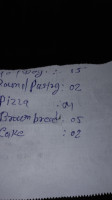 : 05
Pastry : 02
Pizza : 04
Brown bread : 05
Cake : 02